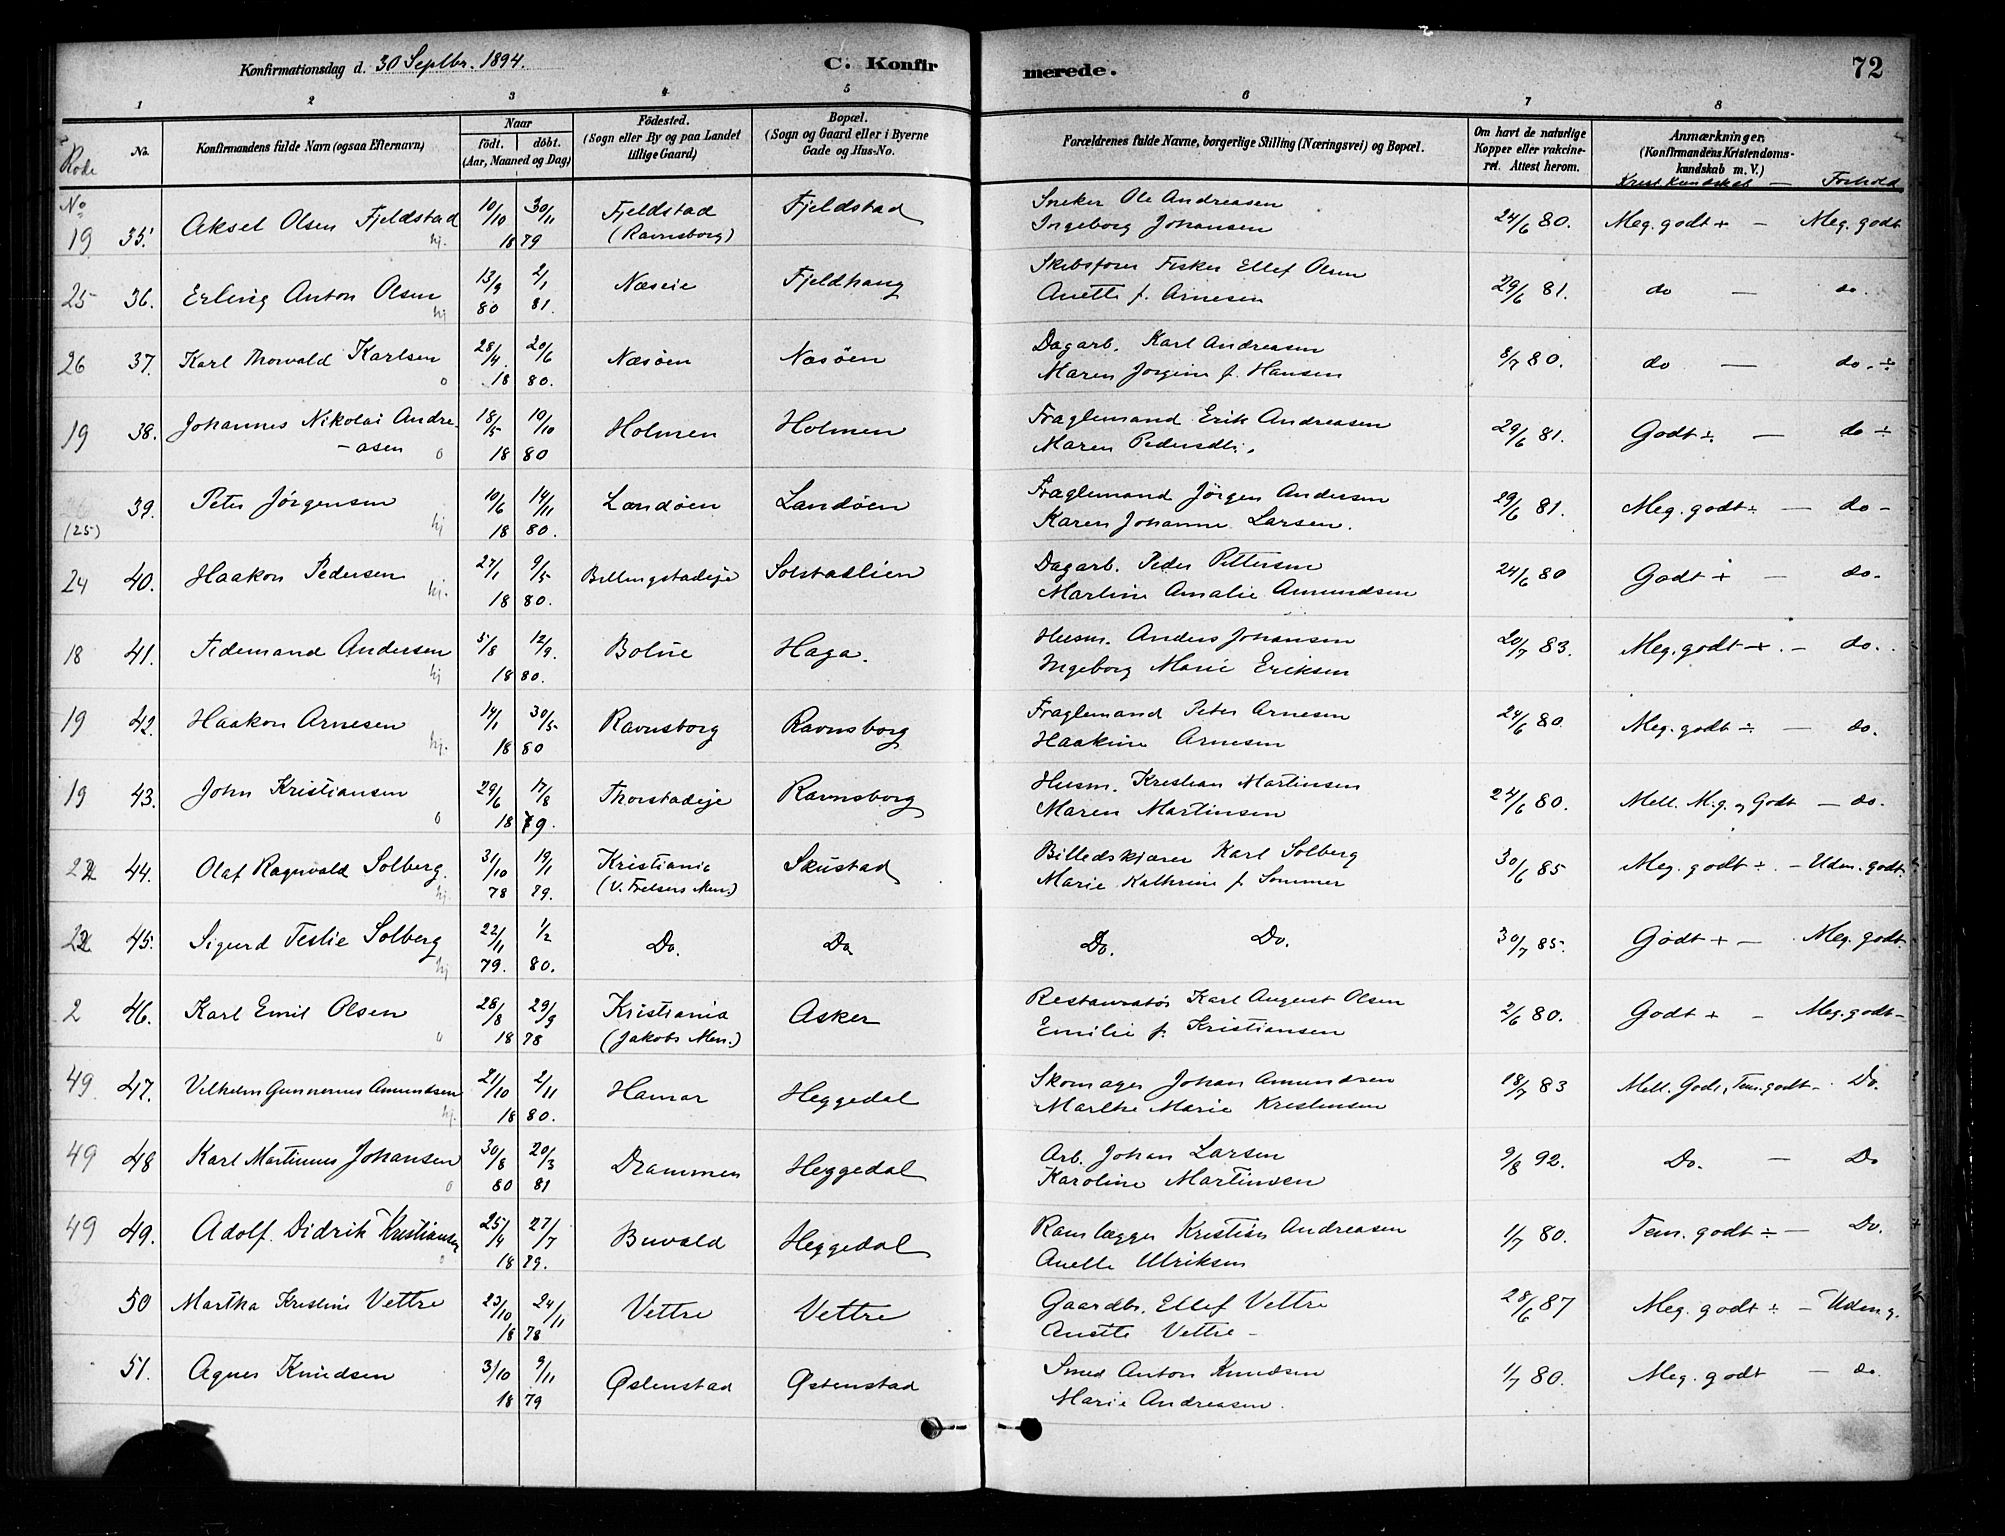 Konfirmationsdag d. 30 Septbr. 1894.
C. Konfirmerede.
72
1 2 3 4 5 6 7 8
Rode No
No.
Konfirmandens fulde Navn (ogsaa Efternavn)
Naar
født. døbt.
(Aar, Maaned og Dag)
Fødested.
(Sogn eller By og paa Landet tillige Gaard)
Bopæl.
(Sogn og Gaard eller i Byerne Gade og Hus-No.
Forældrenes fulde Navne, borgerlige Stilling (Næringsvei) og Bopæl.
Om havt de naturlige Kopper eller vakcineret. Attest herom.
Anmærkninger.
(Konfirmandens Kristendomskundskab m. V.)
Krist. kundskab — Forhold
19 35. Aksel Olsen Fjeldstad hj. 10/10 30/11 1879 Fjeldstad (Ravnsborg) Fjeldstad Sneker Ole Andreasen
Ingeborg Johansen 24/6 80. Meg. godt + — Meg. godt
25 36. Erling Anton Olsen hj 13/9 80 2/1 81. Næseie Fjeldhaug Skibsfører Fisker Ellef Olsen
Anette f. Arnesen 29/6 81. do — do.
26 37. Karl Thorvald Karlsen o 28/4. 20/6 1880. Næsøen Næsøen Dagarb. Karl Andreasen
Maren Jørgine f. Hansen 8/7 80. do — do. ÷
19 38. Johannes Nikolai Andreasen o 18/5 10/10 1880 Holmen Holmen Fraglemand Erik Andreasen
Maren Pedersdtr. 29/6 81. Godt ÷ — do ÷
(25) 39. Peter Jørgensen hj 10/6 14/11 1880. Landøen Landøen Fraglemand Jørgen Andersen
Karen Johanne Larsen. 29/6 81. Meg. godt ÷ — do -
24 40. Haakon Pedersen hj. 27/1 9/5 1880. Billingstadeje Solstadlien Dagarb. Peder Pettersen
Martine Amalie Amundsen 24/6 80 Godt + — do.
18 41. Tidemand Andersen hj 5/8 12/9. 1880. Bolue Haga. Husm. Anders Johansen
Ingeborg Marie Eriksen 20/7 83. Meg. godt + . - do.
19 42. Haakon Arnesen hj. 14/1 30/5 1880 Ravnsborg Ravnsborg Fraglemand Peter Arnesen
Haakine Arnesen 24/6 80. Meg. godt ÷ — do.
19 43. John Kristiansen o 29/6 17/8 1879. Thorstadeje Ravnsborg Husm. Kristian Martinsen
Maren Martinsen 24/6 80. Mell. M. g. og Godt — do.
22 44. Olaf Ragnvald Solberg. hj. 31/10 78 19/1 79. Kristiania (V. Frelsers Men.) Skustad Billedskjærer Karl Solberg
Marie Kathrine f. Sommer 30/6 85 Meg. godt ÷ . - Udm. godt.
22 45. Sigurd Teslie Solberg hj 22/11 79. 1/2 80. Do. Do Do. Do. 30/7 85. Godt + — Meg. godt
2 46. Karl Emil Olsen o 28/8 29/9 1878 Kristiania (Jakobs Men.) Asker Restauratør Karl August Olsen
Emilie f. Kristiansen 2/6 80. Godt + - Meg. godt -
49 47. Vilhelm Gunnerius Amundsen hj. 21/10 2/11 1880. Hamar Heggedal Skomager Johan Amundsen
Marthe Marie Kristensen 18/7 83 Mell. Godt, Tem. godt - Do.
49 48 Karl Martinius Johansen o 30/8 80 20/3 81 Drammen Heggedal Arb. Johan Larsen
Karoline Martinsen 9/8 92. Do. — Do
49 49. Adolf Didrik Kristiansen o 25/4 27/7 1879. Buvald Heggedal Kristian Andreasen
Anette Ulriksen 1/7 80. Tem. godt ÷ — Do.
50 Martha Kristine Vettre 23/10 24/11 1878 Vettre Vettre Gaardbr. Ellef Vettre
Anette Vettre - 28/6 87 Meg. godt ÷ - Udm g.
51. Agnes Knudsen 3/10 9/11 1879 Østenstad Østenstad Smed Anton Knudsen
Marie Andreasen. 1/7 80. Meg. godt — do.